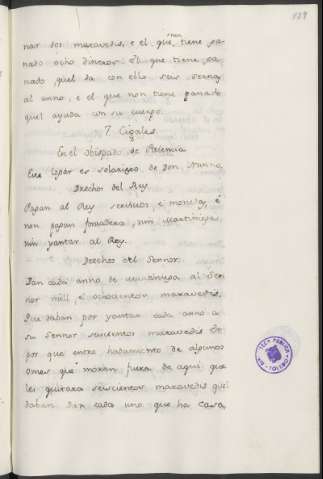 129
non
nar dos maravedis, e el que tiene ga-
nado ocho dineros. El que tiene ga-
nado, quel da con ello seis sernas
al anno, e el que non tiene ganado
quel ayuda con su cuerpo.
7. Cigales
En el obispado de Palencia
Este logar es solariego de Don Nunno,
Derechos del Rey
Pagan al Rey servicios e monedas, e
non pagan fonsadera, nin martiniega,
nin yantar al Rey.
Derechos del Sennor.
Dan cada anno de martiniega al Sen
nor mill, e ochocientos maravedis.
Que daban por yantar cada anno a
su Sennor seiscientos maravedis Et
por que entre hadamiento de algunos
omes que moran fuera de aqui que
les quitara seiscientos maravedis que
daban. Dan cada uno que ha casa,
BIBLIOTECA PUBLICA
TOLEDO